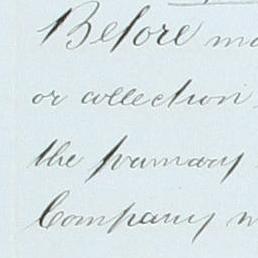 Before
or collection
the primary
Company